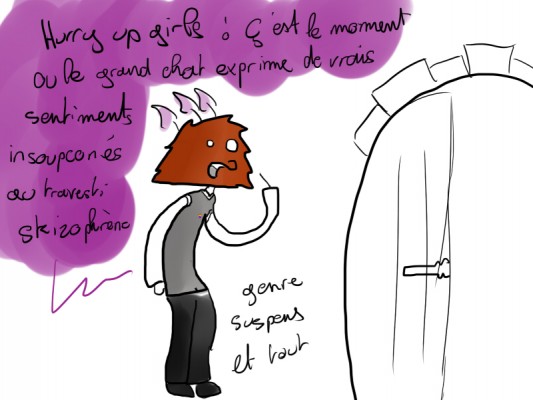 Hurry up girls : Ç'est le moment
ou le grand chat exprime de vrais
sentiments
insoupconés
au travesti
skizophrène
genre
suspens
et tout